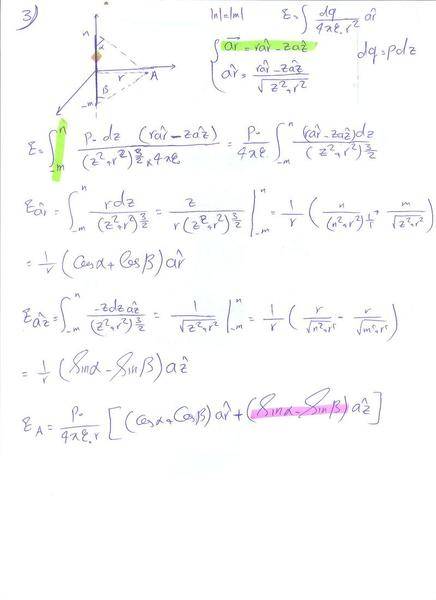 3)
n
α
r
A
β
-m
|n|=|m|
ε = ∫ dq / 4πε.r² ar̂
{ ar⃗ = rar̂ - zaẑ
dq = ρdz
ar̂ = rar̂ - zaẑ / √(z²+r²)
ε = ∫_{-m}^{n} ρ. dz (rar̂ - zaẑ) / (z²+r²)^{3/2} × 4πε. = ρ. / 4πε. ∫_{-m}^{n} (rar̂ - zaẑ)dz / (z²+r²)^{3/2}
εar̂ = ∫_{-m}^{n} rdz / (z²+r²)^{3/2} = z / r(z²+r²)^{3/2} |_{-m}^{n} = 1/r ( n / (n²+r²)^{1/2} + m / √(z²+r²) )
= 1/r (Cosα + Cosβ) ar̂
εaẑ = ∫_{-m}^{n} -zdzaẑ / (z²+r²)^{3/2} = 1 / √(z²+r²) |_{-m}^{n} = 1/r ( r / √(n²+r²) - r / √(m²+r²) )
= 1/r (Sinα - Sinβ) aẑ
ε_A = ρ. / 4πε.r [ (Cosα + Cosβ) ar̂ + (Sinα - Sinβ) aẑ ]